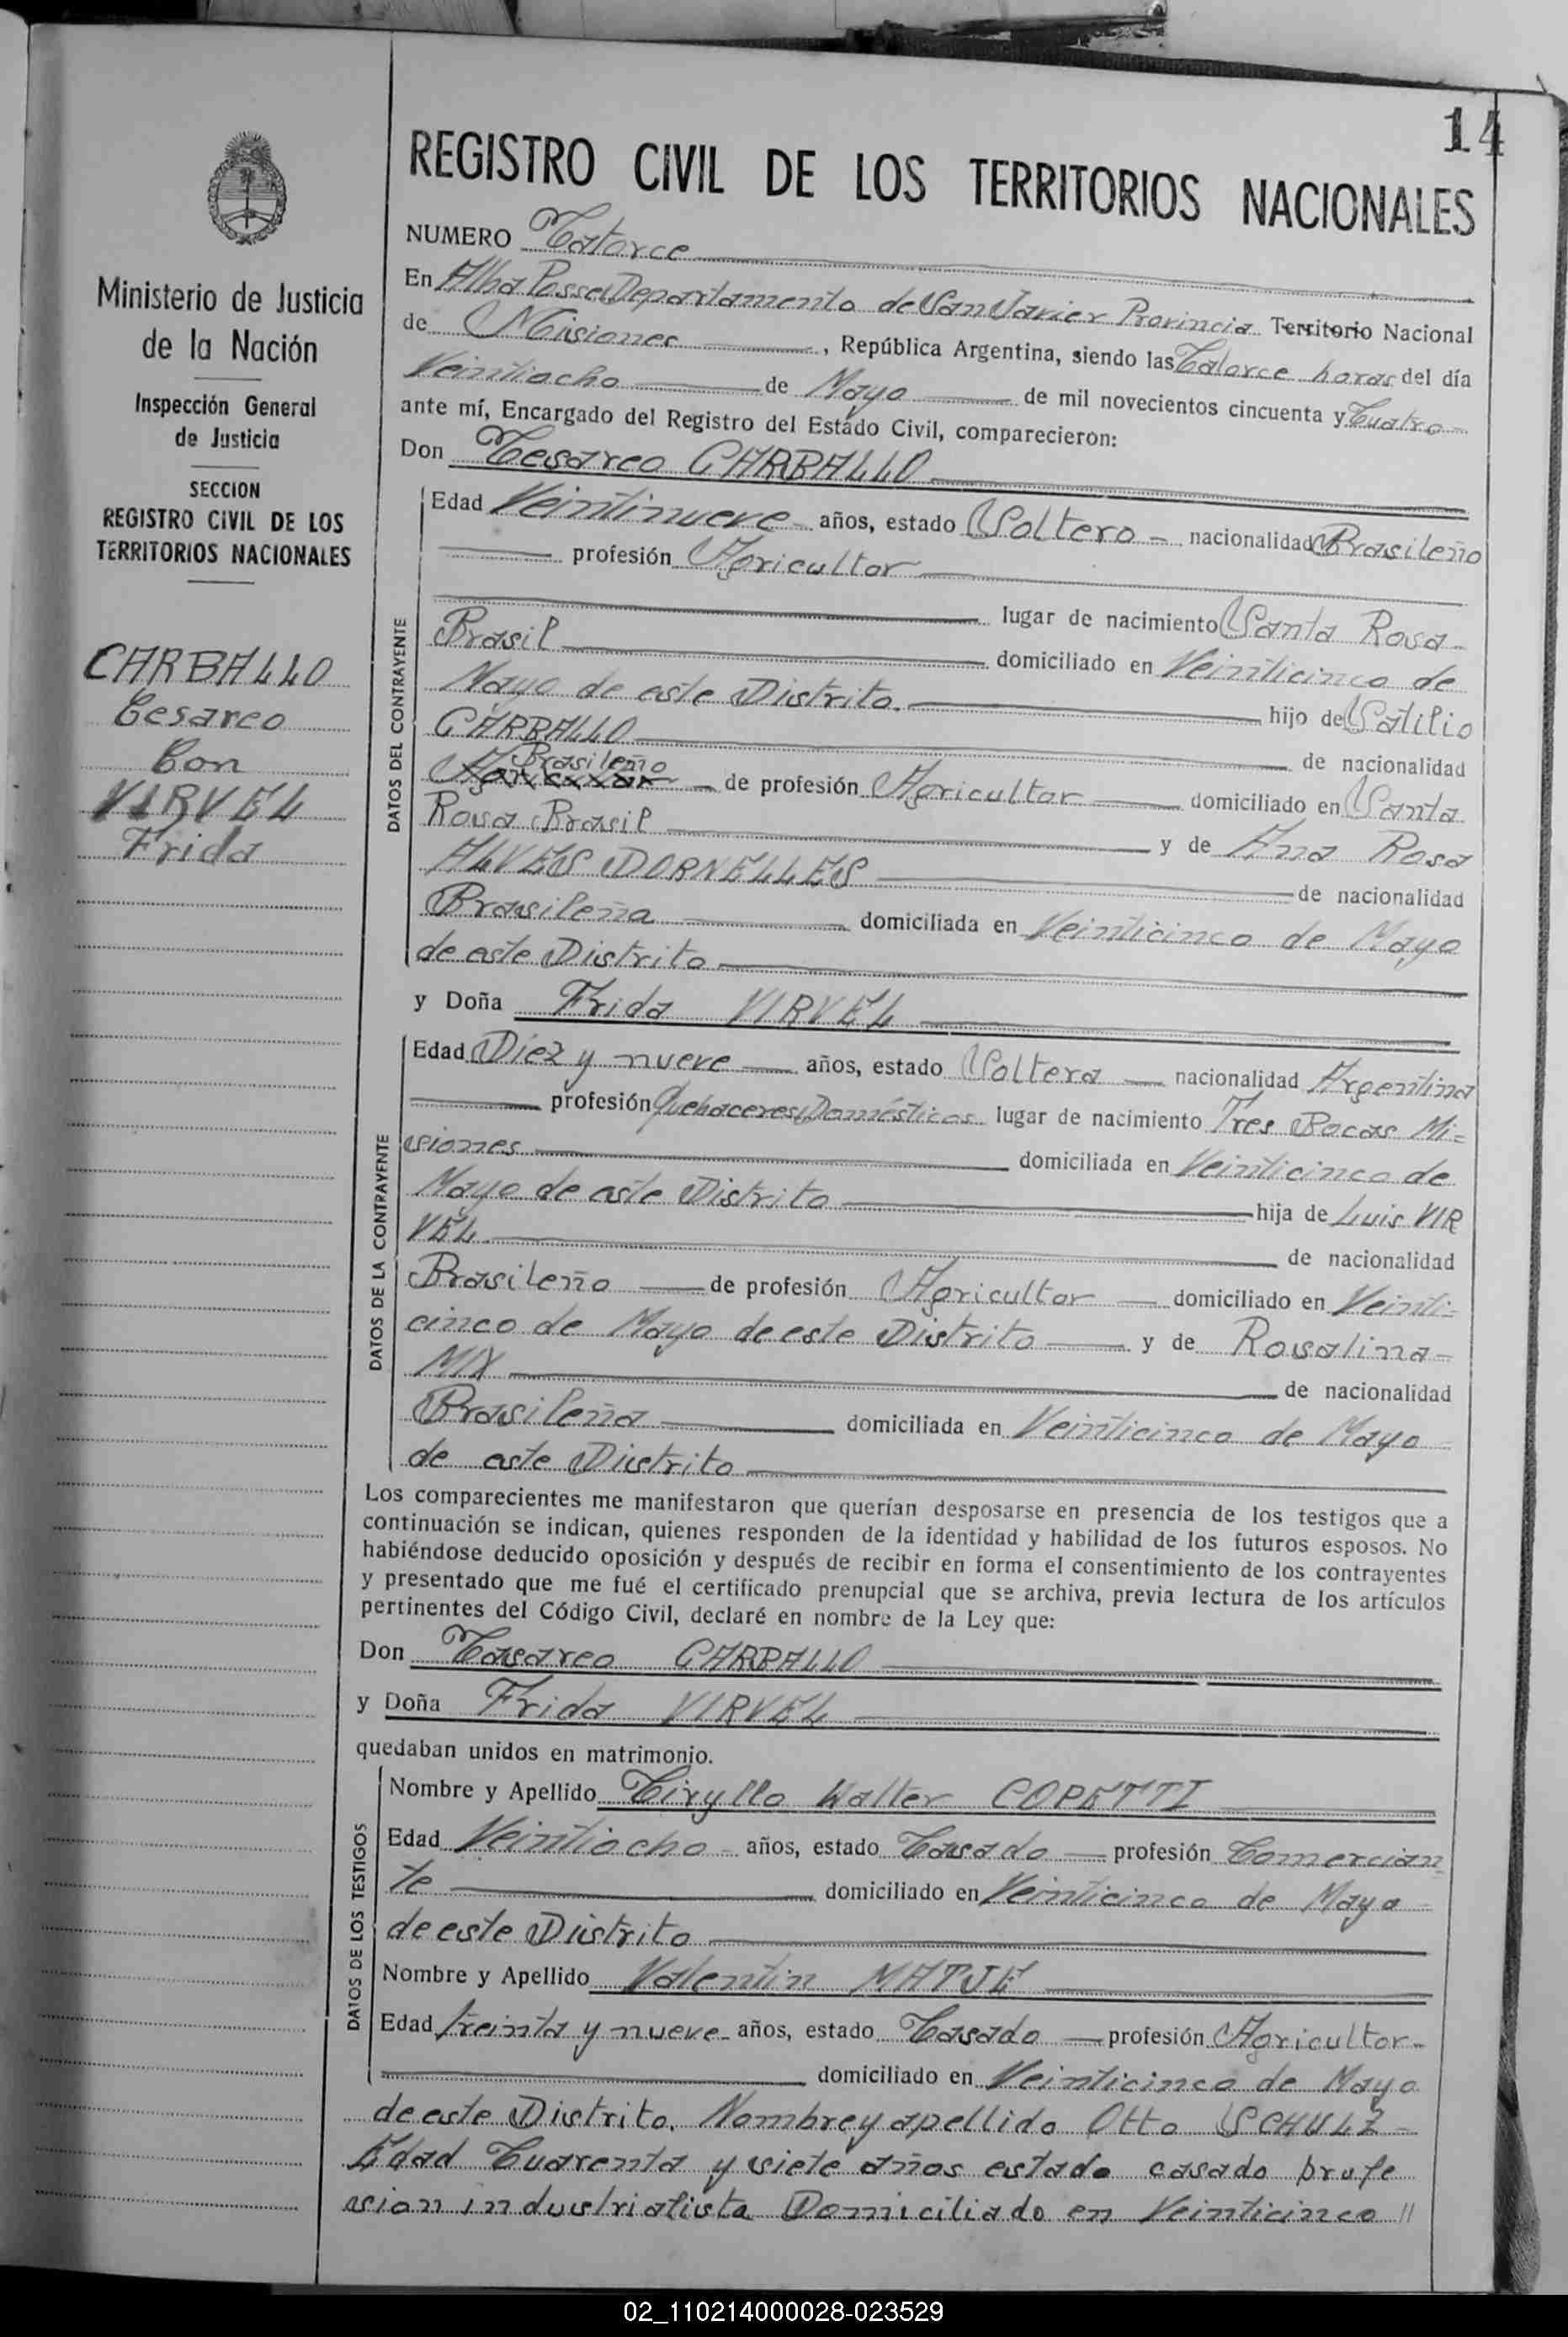 14
REGISTRO CIVIL DE LOS TERRITORIOS NACIONALES
Ministerio de Justicia
de la Nación
Inspección General
de Justicia
SECCION
REGISTRO CIVIL DE LOS
TERRITORIOS NACIONALES
CARBALLO
Cesareo
Con
VIRVEL
Frida
NUMERO Catorce
En Alba Posse, Departamento de San Javier Provincia Territorio Nacional
de Misiones, República Argentina, siendo las Catorce horas del día
Veintiocho de Mayo de mil novecientos cincuenta y Cuatro
ante mí, Encargado del Registro del Estado Civil, comparecieron:
Don Cesareo CARBALLO
DATOS DEL CONTRAYENTE
Edad Veintinueve años, estado Soltero nacionalidad Brasileño
profesión Agricultor
lugar de nacimiento Santa Rosa
Brasil domiciliado en Veinticinco de
Mayo de este Distrito. hijo de Satilio
CARBALLO de nacionalidad
Brasileño
Agricultor de profesión Agricultor domiciliado en Santa
Rosa Brasil y de Ana Rosa
ALVES DORNELLES de nacionalidad
Brasileña domiciliada en Veinticinco de Mayo
de este Distrito
y Doña Frida VIRVEL
DATOS DE LA CONTRAYENTE
Edad Diez y nueve años, estado Soltera nacionalidad Argentina
profesión Quehaceres Domésticos lugar de nacimiento Tres Bocas Mi=
siones domiciliada en Veinticinco de
Mayo de este Distrito hija de Luis VIR
VEL de nacionalidad
Brasileño de profesión Agricultor domiciliado en Veinti=
cinco de Mayo de este Distrito y de Rosalina
MIX de nacionalidad
Brasileña domiciliada en Veinticinco de Mayo
de este Distrito
Los comparecientes me manifestaron que querían desposarse en presencia de los testigos que a
continuación se indican, quienes responden de la identidad y habilidad de los futuros esposos. No
habiéndose deducido oposición y después de recibir en forma el consentimiento de los contrayentes
y presentado que me fué el certificado prenupcial que se archiva, previa lectura de los artículos
pertinentes del Código Civil, declaré en nombre de la Ley que:
Don Casareo CARBALLO
y Doña Frida VIRVEL
quedaban unidos en matrimonio.
DATOS DE LOS TESTIGOS
Nombre y Apellido Ciryllo Walter COPETTI
Edad Veintiocho años, estado Casado profesión Comercian
te domiciliado en Veinticinco de Mayo
de este Distrito
Nombre y Apellido Valentin MATJE
Edad treinta y nueve años, estado Casado profesión Agricultor
domiciliado en Veinticinco de Mayo
de este Distrito. Nombre y apellido Otto SCHULZ
Edad Cuarenta y siete años estado casado profe
sion industrialista Domiciliado en Veinticinco //
02_110214000028-023529